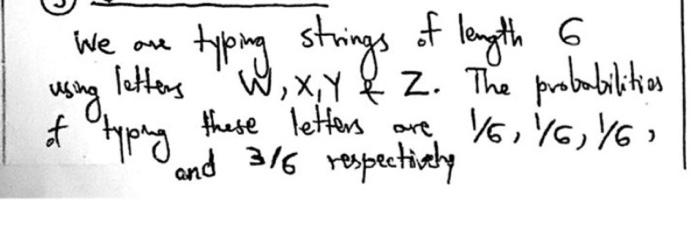 We are typing strings of length 6
using letters W, X, Y & Z. The probabilities
of typing these letters are 1/6, 1/6, 1/6,
and 3/6 respectively